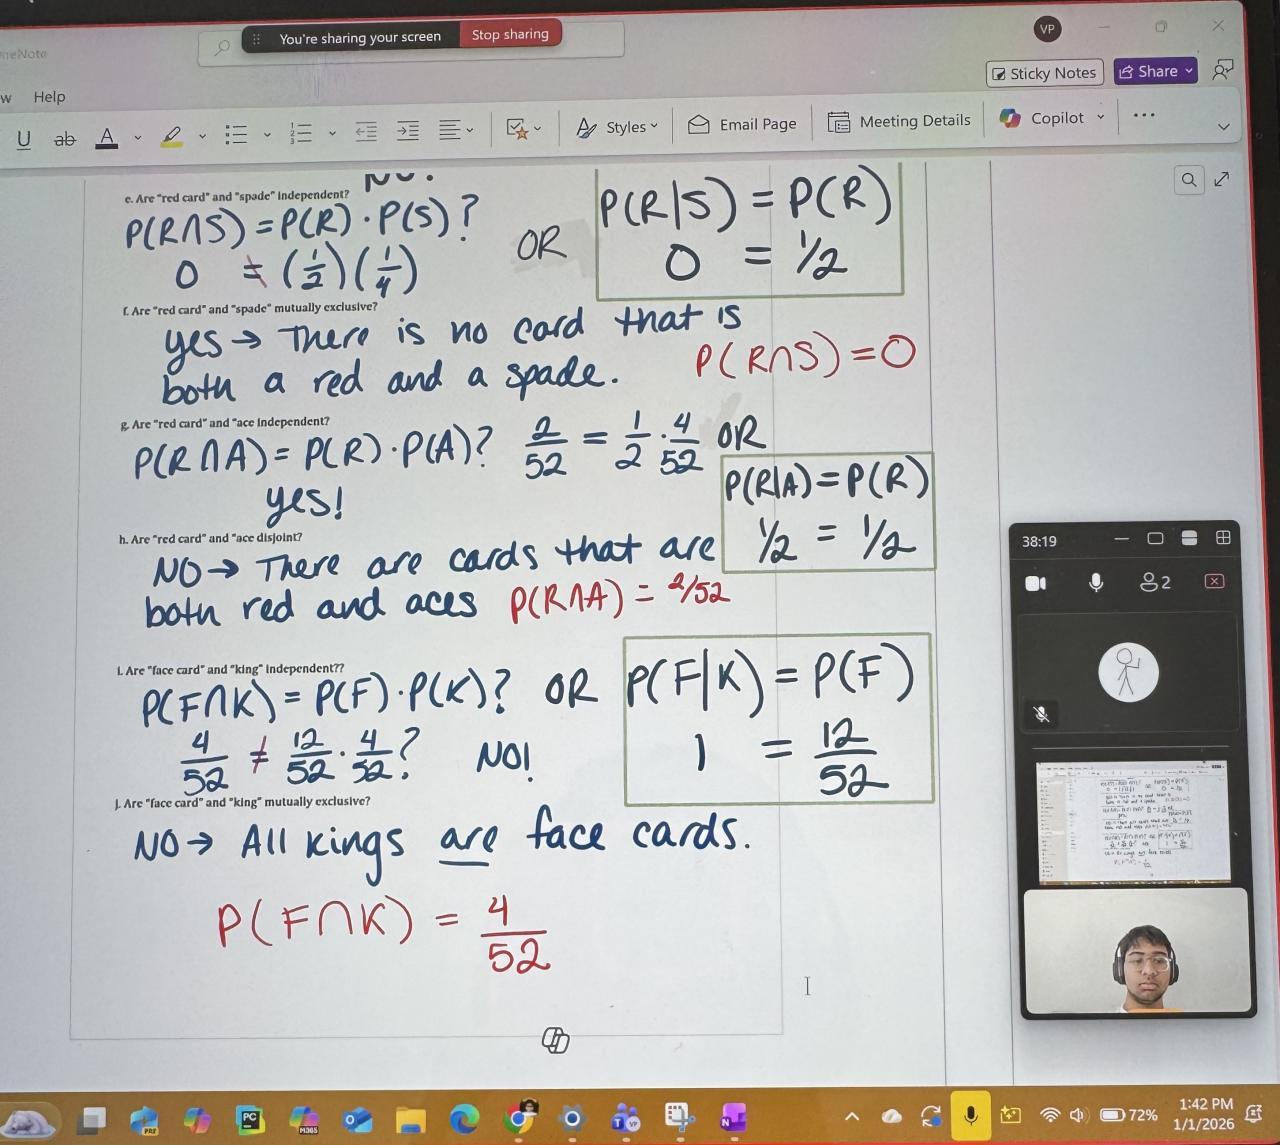 OneNote
You're sharing your screen
Stop sharing
VP
Sticky Notes
Share
Help
U
ab
A
Styles
Email Page
Meeting Details
Copilot
NO.
e. Are "red card" and "spade" independent?
P(R∩S) = P(R) · P(S) ?
0 ≠ (1/2)(1/4)
OR
P(R|S) = P(R)
0 = 1/2
f. Are "red card" and "spade" mutually exclusive?
yes → There is no card that is
both a red and a spade.
P(R∩S) = 0
g. Are "red card" and "ace independent?
P(R∩A) = P(R) · P(A)? 2/52 = 1/2 · 4/52 OR
yes!
P(R|A) = P(R)
1/2 = 1/2
h. Are "red card" and "ace disjoint?
NO → There are cards that are
both red and aces P(R∩A) = 2/52
i. Are "face card" and "king" independent??
P(F∩K) = P(F) · P(K)? OR
4/52 ≠ 12/52 · 4/52? NO!
P(F|K) = P(F)
1 = 12/52
j. Are "face card" and "king" mutually exclusive?
NO → All kings are face cards.
P(F∩K) = 4/52
38:19
2
PRE
PC
M365
T
VP
N
72%
1:42 PM
1/1/2026